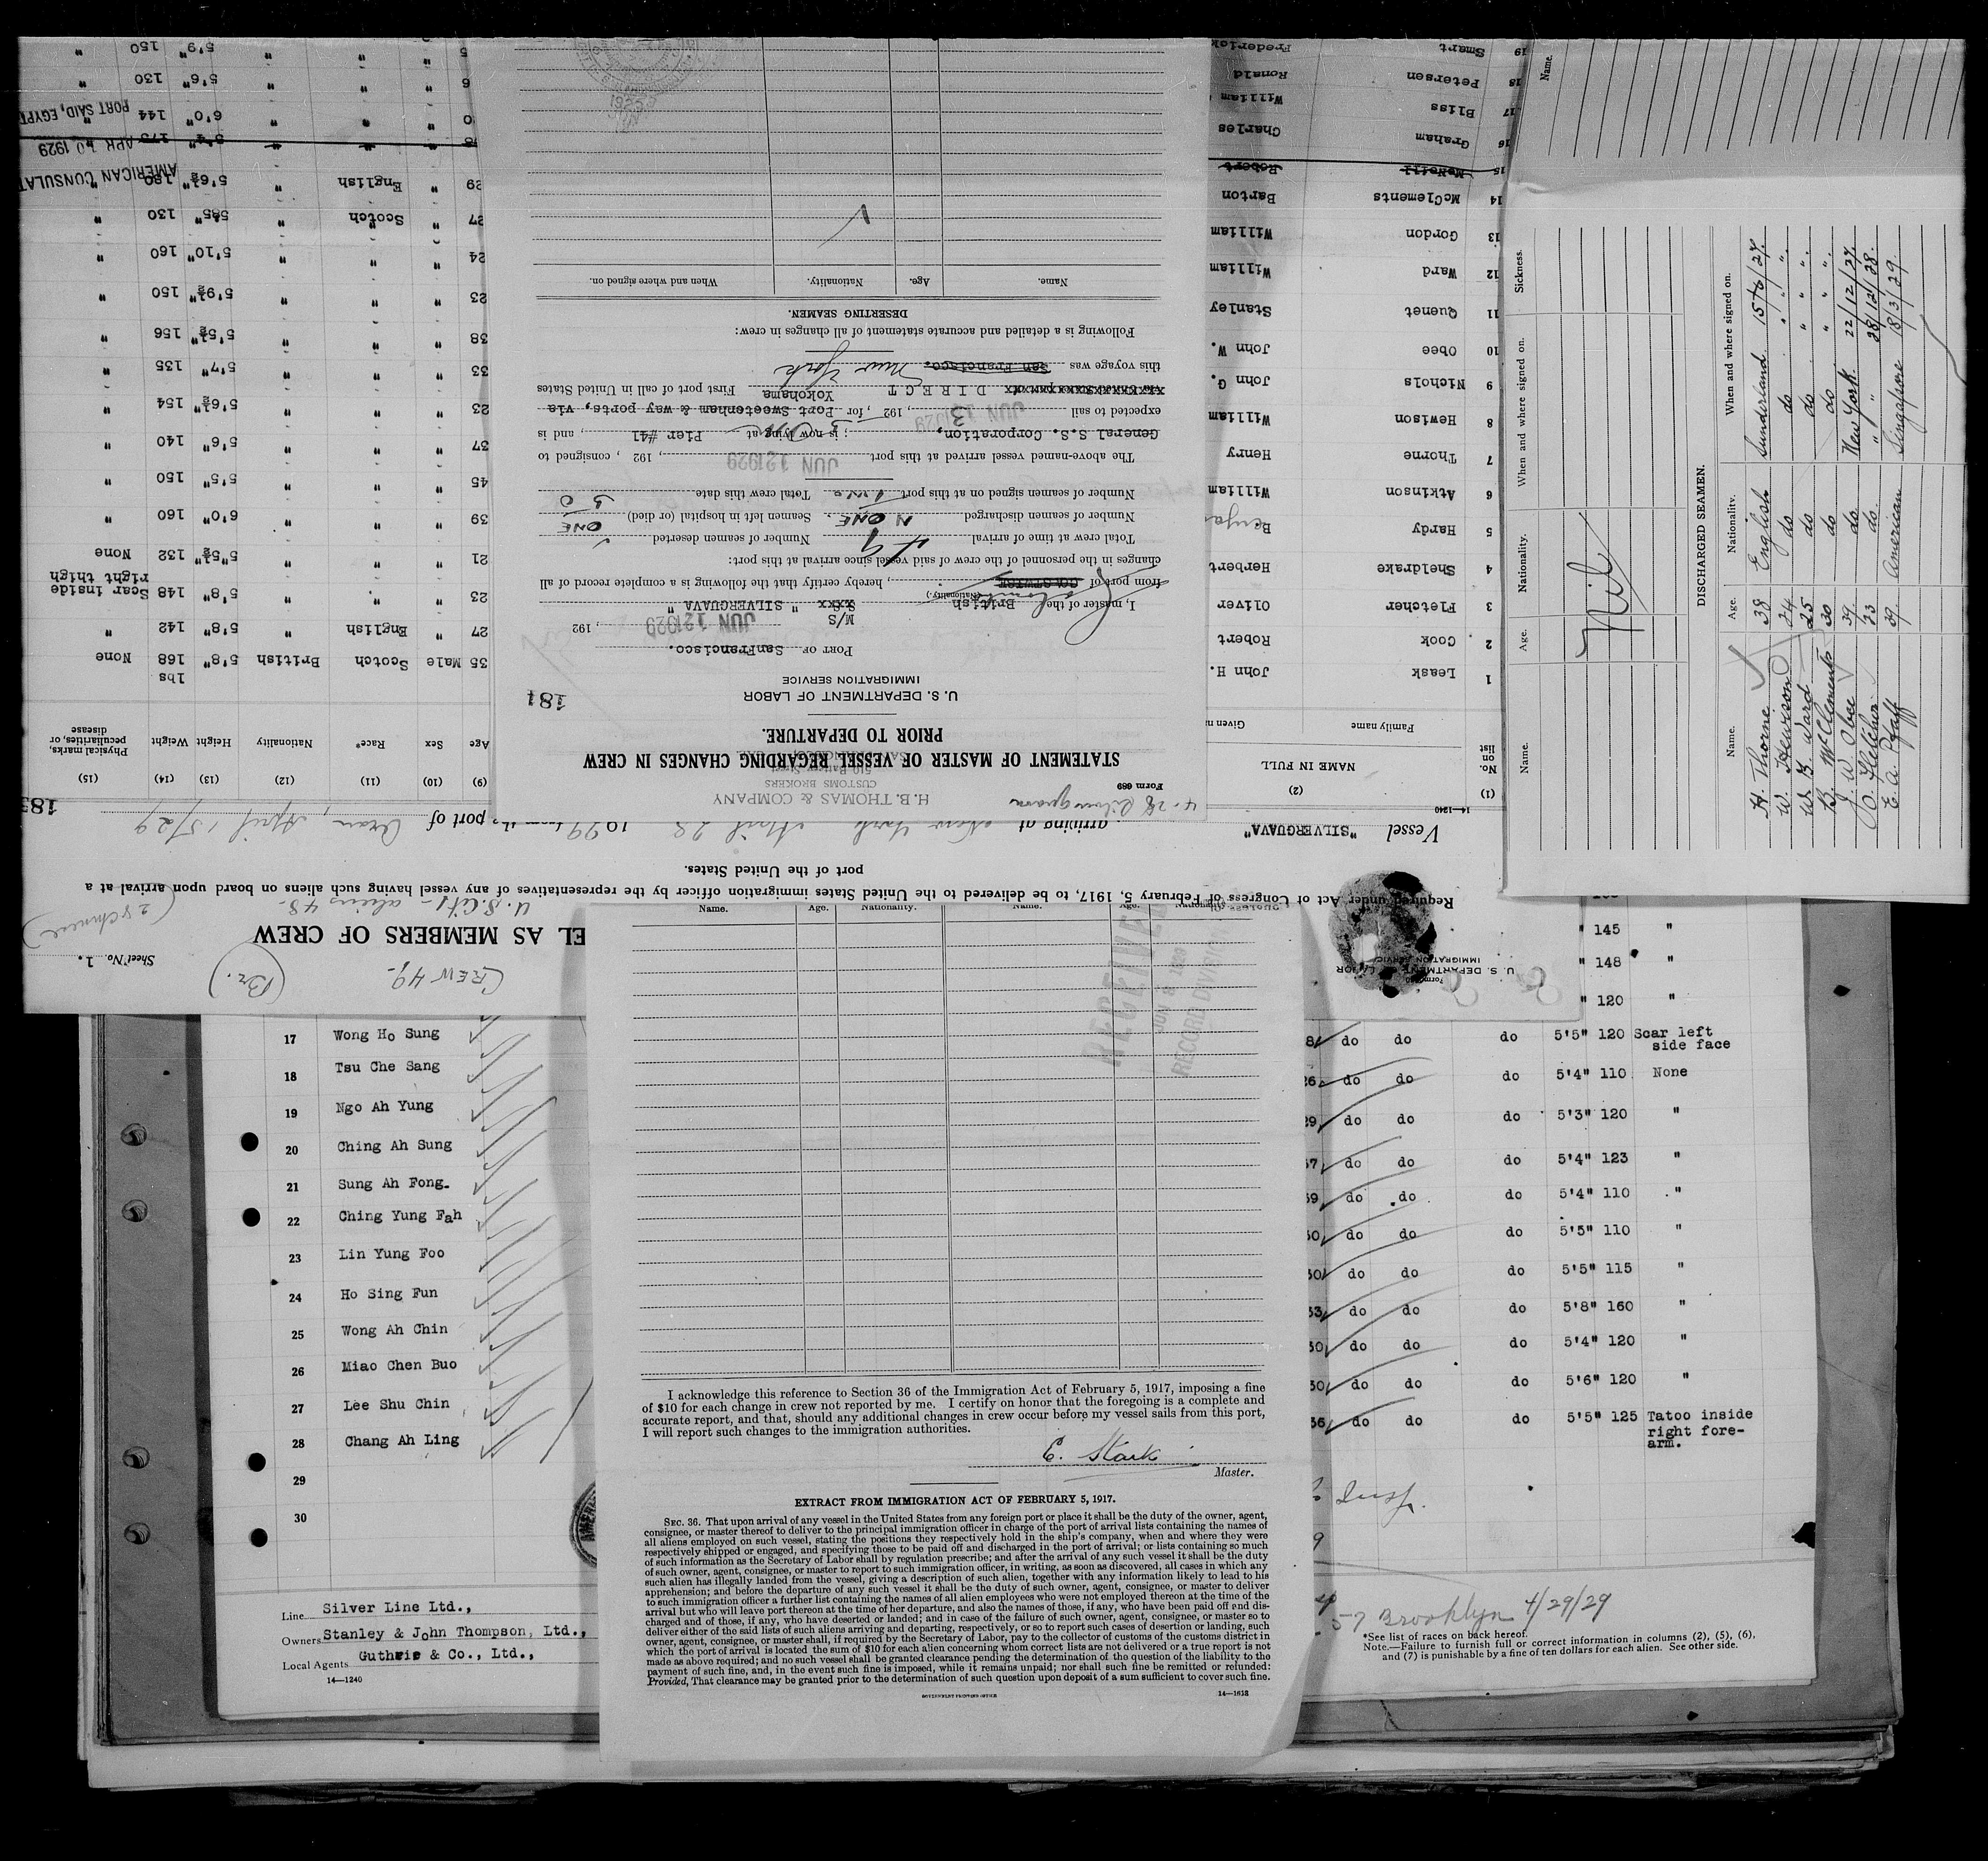 Sheet No. 1.
(Br.)
CREW 49-
EL AS MEMBERS OF CREW
U.S. Cit 1 - aliens 48-
(28 Chinese)
Required under Act of Congress of February 5, 1917, to be delivered to the United States immigration officer by the representatives of any vessel having such aliens on board upon arrival at a
port of the United States.
Vessel "SILVERGUAVA" arriving at New York April 28 1929 port of Oran, April 15/29
14—1240
(1) (2)
No. on list NAME IN FULL
Family name Given
1 Leask John H.
2 Cook Robert
3 Fletcher Oliver
4 Sheldrake Herbert
5 Hardy
6 Atkinson William
7 Thorne Henry
8 Hewison William
9 Nichols John G.
10 Obee John W.
11 Quenet Stanley
12 Ward William
13 Gordon William
14 McClements Barton
15 McNeill Robert
16 Graham Charles
17 Bliss William
18 Petersen Ronald
19 Smart Frederick
(9) (10) (11) (12) (13) (14) (15)
Age Sex Race* Nationality Height Weight Physical marks, peculiarities, or disease
lbs
35 Male Scotch British 5'8" 168 None
27 " English " 5'8" 142 "
23 " " " 5'8" 148 Scar inside right thigh
21 " " " 5'5½" 132 None
39 " " " 6'0" 160 "
45 " " " 5'5" 150 "
37 " " " 5'6" 140 "
23 " " " 5'6½" 154 "
33 " " " 5'7" 135 "
38 " " " 5'5½" 156 "
23 " " " 5'9½" 150 "
24 " " " 5'10" 160 "
27 " Scotch " 130 "
29 " English " 5'6½" 180 "
" " " 6'0" 144 "
" " " 5'6" 130 "
" " " 5'9" 150 "
AMERICAN CONSULAT
APR 20 1929
PORT SAID, EGYPT
Form 689
H. B. THOMAS & COMPANY
CUSTOMS BROKERS
STATEMENT OF MASTER OF VESSEL REGARDING CHANGES IN CREW
PRIOR TO DEPARTURE.
U. S. DEPARTMENT OF LABOR
IMMIGRATION SERVICE
181
PORT OF SanFrancisco.
JUN 12 1929, 192
I, master of the British M/S " SILVERGUAVA "
(Nationality.)
from port of Colombo, hereby certify that the following is a complete record of all
changes in the personnel of the crew of said vessel since arrival at this port:
Total crew at time of arrival 49 Number of seamen deserted
Number of seamen discharged NONE. Seamen left in hospital (or died) ONE
Number of seamen signed on at this port Total crew this date 50
The above-named vessel arrived at this port JUN 12 1929, 192 , consigned to
General S.S. Corporation, ; is now lying at Pier #41, and is
expected to sail JUN 13 1929, 192 , for Port Sweetenham & way ports, via
DIRECT Yokohama First port of call in United States
this voyage was San Francisco. New York
Following is a detailed and accurate statement of all changes in crew:
DESERTING SEAMEN.
Name. Age. Nationality. When and where signed on.
Name. Age. Nationality. When and where signed on. Sickness.
Nil
DISCHARGED SEAMEN.
Name. Age. Nationality. When and where signed on.
H. Thorne 38 English Sunderland 15/6/27.
W. Hewison 24 do do " "
W. G. Ward 25 do do " "
B. McClements 30 do do " "
J. W. Obee 39 do New York 22/12/27.
O. Fletcher 23 do " " 28/12/28.
E. A. Pfaff 39 American Singapore 18/3/29.
Name.
Form 680
U. S. DEPARTMENT OF LABOR
IMMIGRATION SERVICE
Name. Age. Nationality. Name. Age. Nationality.
RECEIVED
RECORD DIVISION
I acknowledge this reference to Section 36 of the Immigration Act of February 5, 1917, imposing a fine
of $10 for each change in crew not reported by me. I certify on honor that the foregoing is a complete and
accurate report, and that, should any additional changes in crew occur before my vessel sails from this port,
I will report such changes to the immigration authorities.
E. Stark
Master.
EXTRACT FROM IMMIGRATION ACT OF FEBRUARY 5, 1917.
SEC. 36. That upon arrival of any vessel in the United States from any foreign port or place it shall be the duty of the owner, agent,
consignee, or master thereof to deliver to the principal immigration officer in charge of the port of arrival lists containing the names of
all aliens employed on such vessel, stating the positions they respectively hold in the ship's company, when and where they were
respectively shipped or engaged, and specifying those to be paid off and discharged in the port of arrival; or lists containing so much
of such information as the Secretary of Labor shall by regulation prescribe; and after the arrival of any such vessel it shall be the duty
of such owner, agent, consignee, or master to report to such immigration officer, in writing, as soon as discovered, all cases in which any
such alien has illegally landed from the vessel, giving a description of such alien, together with any information likely to lead to his
apprehension; and before the departure of any such vessel it shall be the duty of such owner, agent, consignee, or master to deliver
to such immigration officer a further list containing the names of all alien employees who were not employed thereon at the time of the
arrival but who will leave port thereon at the time of her departure, and also the names of those, if any, who have been paid off and dis-
charged and of those, if any, who have deserted or landed; and in case of the failure of such owner, agent, consignee, or master so to
deliver either of the said lists of such aliens arriving and departing, respectively, or so to report such cases of desertion or landing, such
owner, agent, consignee, or master, shall, if required by the Secretary of Labor, pay to the collector of customs of the customs district in
which the port of arrival is located the sum of $10 for each alien concerning whom correct lists are not delivered or a true report is not
made as above required; and no such vessel shall be granted clearance pending the determination of the question of the liability to the
payment of such fine, and, in the event such fine is imposed, while it remains unpaid; nor shall such fine be remitted or refunded:
Provided, That clearance may be granted prior to the determination of such question upon deposit of a sum sufficient to cover such fine.
GOVERNMENT PRINTING OFFICE
14—1618
" 145 "
" 148 "
" 120 "
17 Wong Ho Sung do do do 5'5" 120 Scar left side face
18 Tsu Che Sang 26 do do do 5'4" 110 None
19 Ngo Ah Yung 29 do do do 5'3" 120 "
20 Ching Ah Sung do do do 5'4" 123 "
21 Sung Ah Fong- do do do 5'4" 110 "
22 Ching Yung Fah do do do 5'5" 110 "
23 Lin Yung Foo do do do 5'5" 115 "
24 Ho Sing Fun do do do 5'8" 160 "
25 Wong Ah Chin do do do 5'4" 120 "
26 Miao Chen Buo do do do 5'6" 120 "
27 Lee Shu Chin do do do 5'5" 125 Tatoo inside right fore-arm.
28 Chang Ah Ling
29
30
Line Silver Line Ltd.,
Owners Stanley & John Thompson, Ltd.,
Local Agents Guthrie & Co., Ltd.,
14—1240
57 Brooklyn 4/29/29
*See list of races on back hereof.
Note.—Failure to furnish full or correct information in columns (2), (5), (6),
and (7) is punishable by a fine of ten dollars for each alien. See other side.